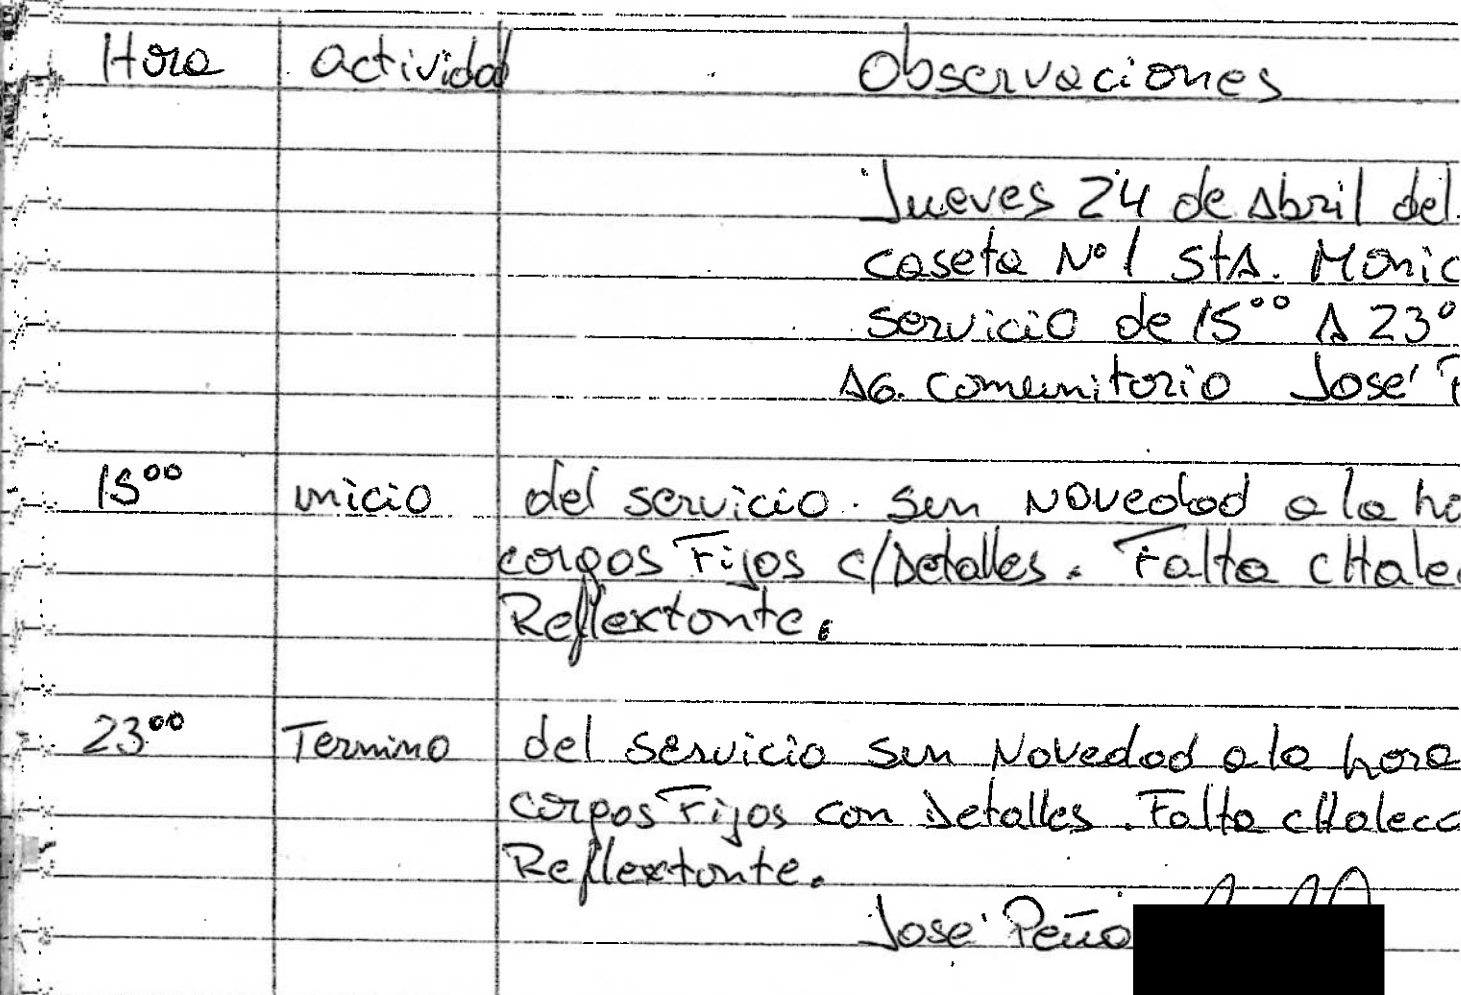 Hora actividad Observaciones
Jueves 24 de Abril del
caseta Nº1 StA. Monic
servicio de 15⁰⁰ A 23⁰
AG. comunitario José P
15⁰⁰ inicio del servicio. Sin Novedad a la ho
cargos Fijos c/Detalles. Falta cHalec
Reflextante.
23⁰⁰ Termino del servicio Sin Novedad a la hora
cargos Fijos con Detalles. Falta cHalecc
Reflextante.
José Peña